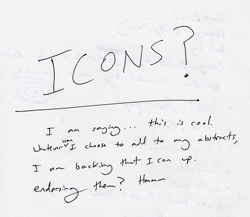 ICONS?
I am saying... this is cool.
Whatever icon I choose to add to my abstracts,
I am backing that icon up.
endorsing them? Hmmm